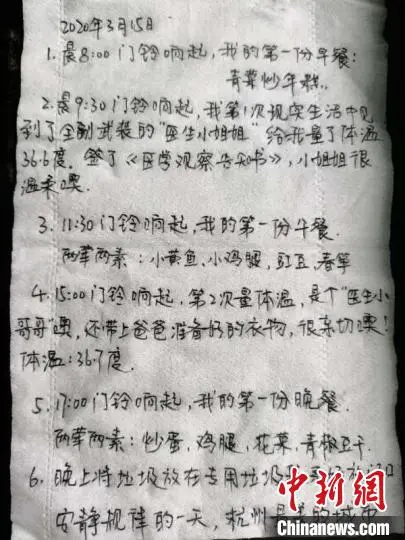 2020年3月15日
1. 晨8:00 门铃响起,我的第一份早餐:
青菜炒年糕.
2. 晨9:30 门铃响起,我第1次现实生活中见
到了全副武装的“医生小姐姐”给我量了体温
36.6度. 签了《医学观察告知书》,小姐姐很
温柔噢.
3. 11:30 门铃响起,我的第一份午餐.
两荤两素:小黄鱼、小鸡腿、豇豆、春笋
4. 15:00 门铃响起,第2次量体温,是个“医生小
哥哥”噢,还带上爸爸准备好的衣物,很亲切噢!
体温:36.7度.
5. 17:00 门铃响起,我的第一份晚餐.
两荤两素:炒蛋、鸡腿、花菜、青椒豆干.
6. 晚上将垃圾放在专用垃圾
安静规律的一天,杭州是
中新网
Chinanews.com